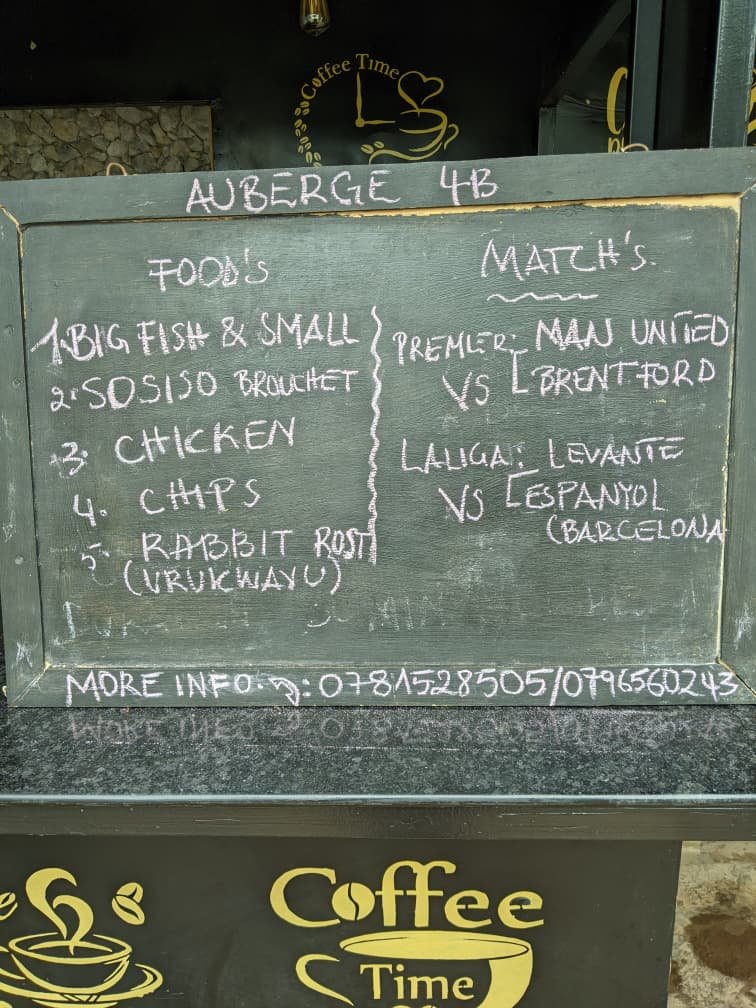 Coffee Time
AUBERGE 4B
FOOD'S
1. BIG FISH & SMALL
2. SOSISO BROUCHET
3. CHICKEN
4. CHIPS
5. RABBIT ROST
(URUKWAVU)
MATCH'S.
PREMLER: MAN UNITED
VS BRENTFORD
LALIGA: LEVANTE
VS ESPANYOL
(BARCELONA
MORE INFO. : 0781528505/0796560243
Coffee
Time